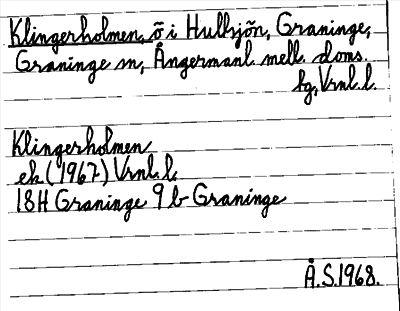 Klingerholmen, ö i Hulbsjön, Graninge,
Graninge sn, Ångermanl. mell. doms.
bg, Vrnl. l.
Klingerholmen
ek (1967) Vrnl. l.
18H Graninge 9 b Graninge
Å.S. 1968.